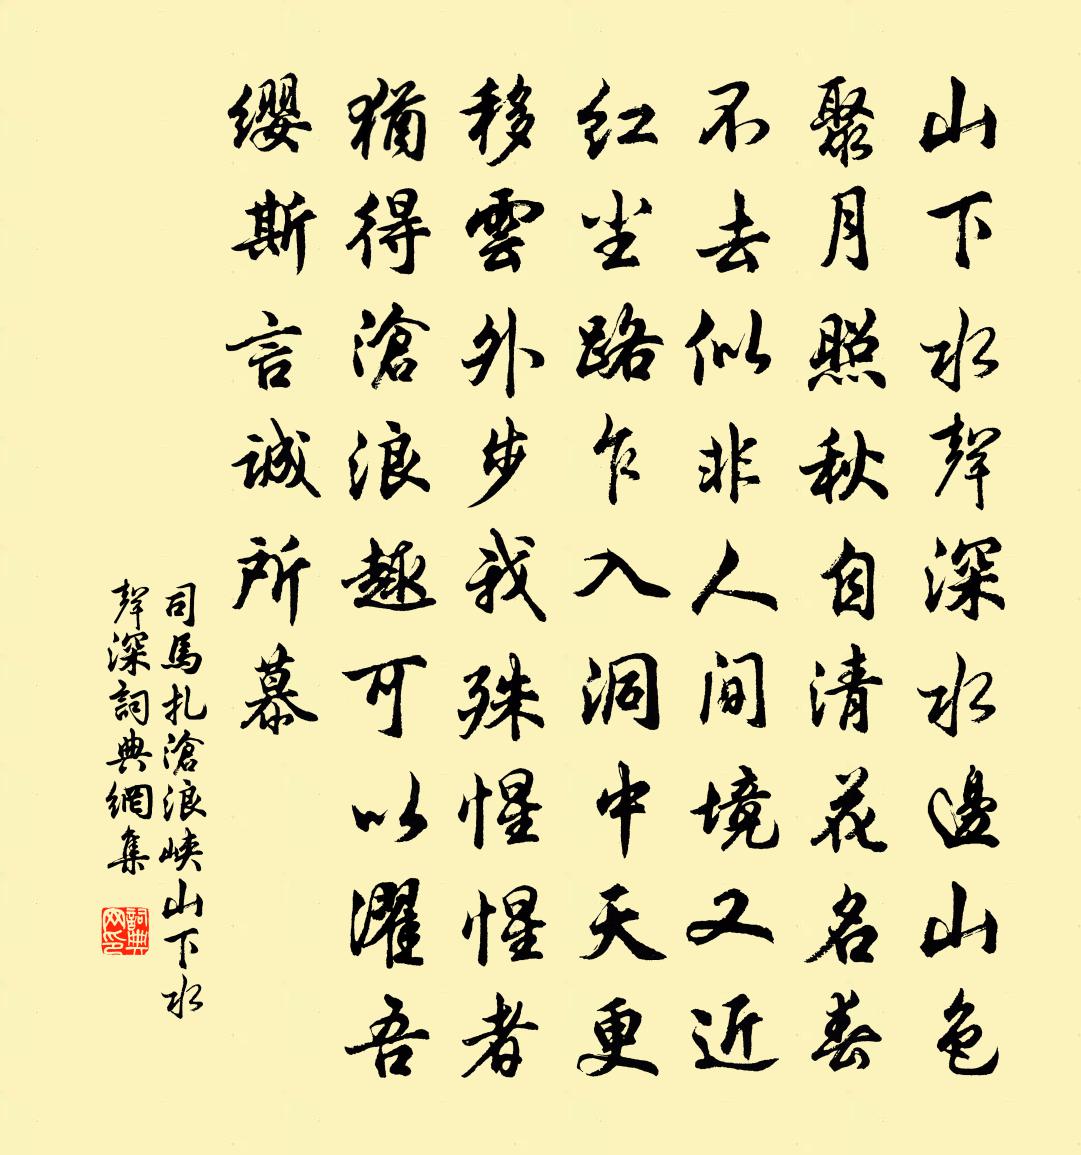 山下水聲深水邊山色
聚月照秋自清花名春
不去似非人间境又近
红尘路乍入洞中天更
移雲外步我殊惺惺者
猶得滄浪趣可以濯吾
缨斯言诚所慕
司馬扎滄浪峽山下水
聲深詞典網集
詞典网印